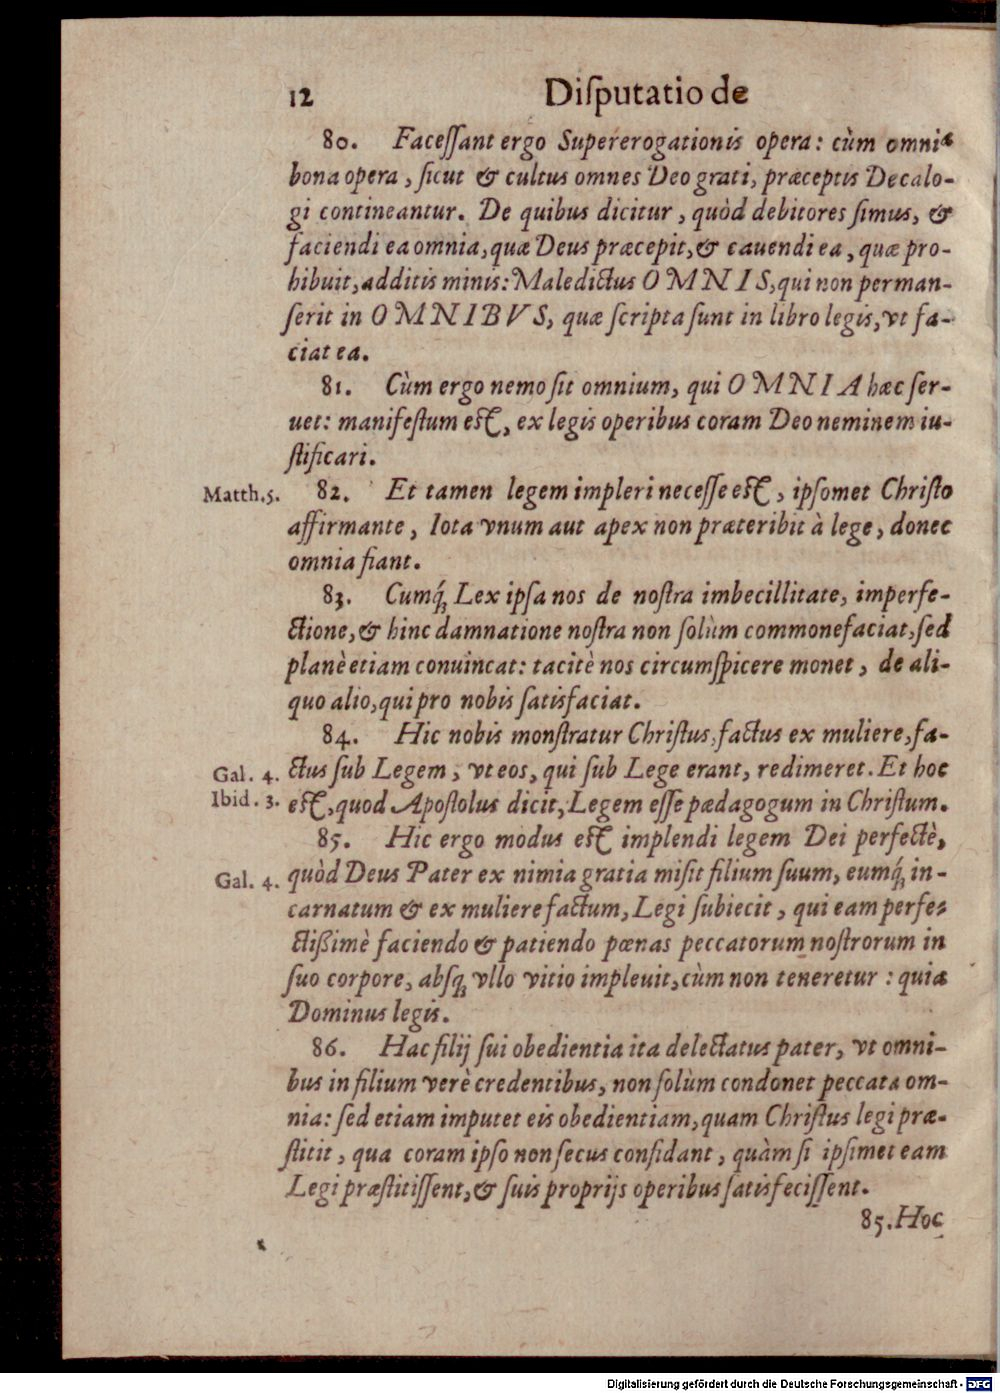 12 Diſputatio de
80. Faceſſant ergo Supererogationis opera: cùm omnia
bona opera, ſicut & cultus omnes Deo grati, præceptis Decalo-
gi contineantur. De quibus dicitur, quòd debitores ſimus, &
faciendi ea omnia, quæ Deus præcepit, & cauendi ea, quæ pro-
hibuit, additis minis: Maledictus OMNIS, qui non perman-
ſerit in OMNIBVS, quæ ſcripta ſunt in libro legis, vt fa-
ciat ea.
81. Cùm ergo nemo ſit omnium, qui OMNIA hæc ſer-
uet: manifeſtum eſt, ex legis operibus coram Deo neminem iu-
ſtificari.
Matth.5. 82. Et tamen legem impleri neceſſe eſt, ipſomet Chriſto
affirmante, Iota vnum aut apex non præteribit à lege, donec
omnia fiant.
83. Cumq́; Lex ipſa nos de noſtra imbecillitate, imperfe-
ctione, & hinc damnatione noſtra non ſolùm commonefaciat, ſed
planè etiam conuincat: tacitè nos circumſpicere monet, de ali-
quo alio, qui pro nobis ſatisfaciat.
84. Hic nobis monſtratur Chriſtus, factus ex muliere, fa-
Gal. 4. ctus ſub Legem, vt eos, qui ſub Lege erant, redimeret. Et hoc
Ibid. 3. eſt, quod Apoſtolus dicit, Legem eſſe pædagogum in Chriſtum.
85. Hic ergo modus eſt implendi legem Dei perfectè,
Gal. 4. quòd Deus Pater ex nimia gratia miſit filium ſuum, eumq́; in-
carnatum & ex muliere factum, Legi ſubiecit, qui eam perfe-
ctißimè faciendo & patiendo pœnas peccatorum noſtrorum in
ſuo corpore, abſq; vllo vitio impleuit, cùm non teneretur: quia
Dominus legis.
86. Hac filij ſui obedientia ita delectatus pater, vt omni-
bus in filium verè credentibus, non ſolùm condonet peccata om-
nia: ſed etiam imputet eis obedientiam, quam Chriſtus legi præ-
ſtitit, qua coram ipſo non ſecus confidant, quàm ſi ipſimet eam
Legi præſtitiſſent, & ſuis proprijs operibus ſatisfeciſſent.
85. Hoc
Digitalisierung gefördert durch die Deutsche Forschungsgemeinschaft - DFG